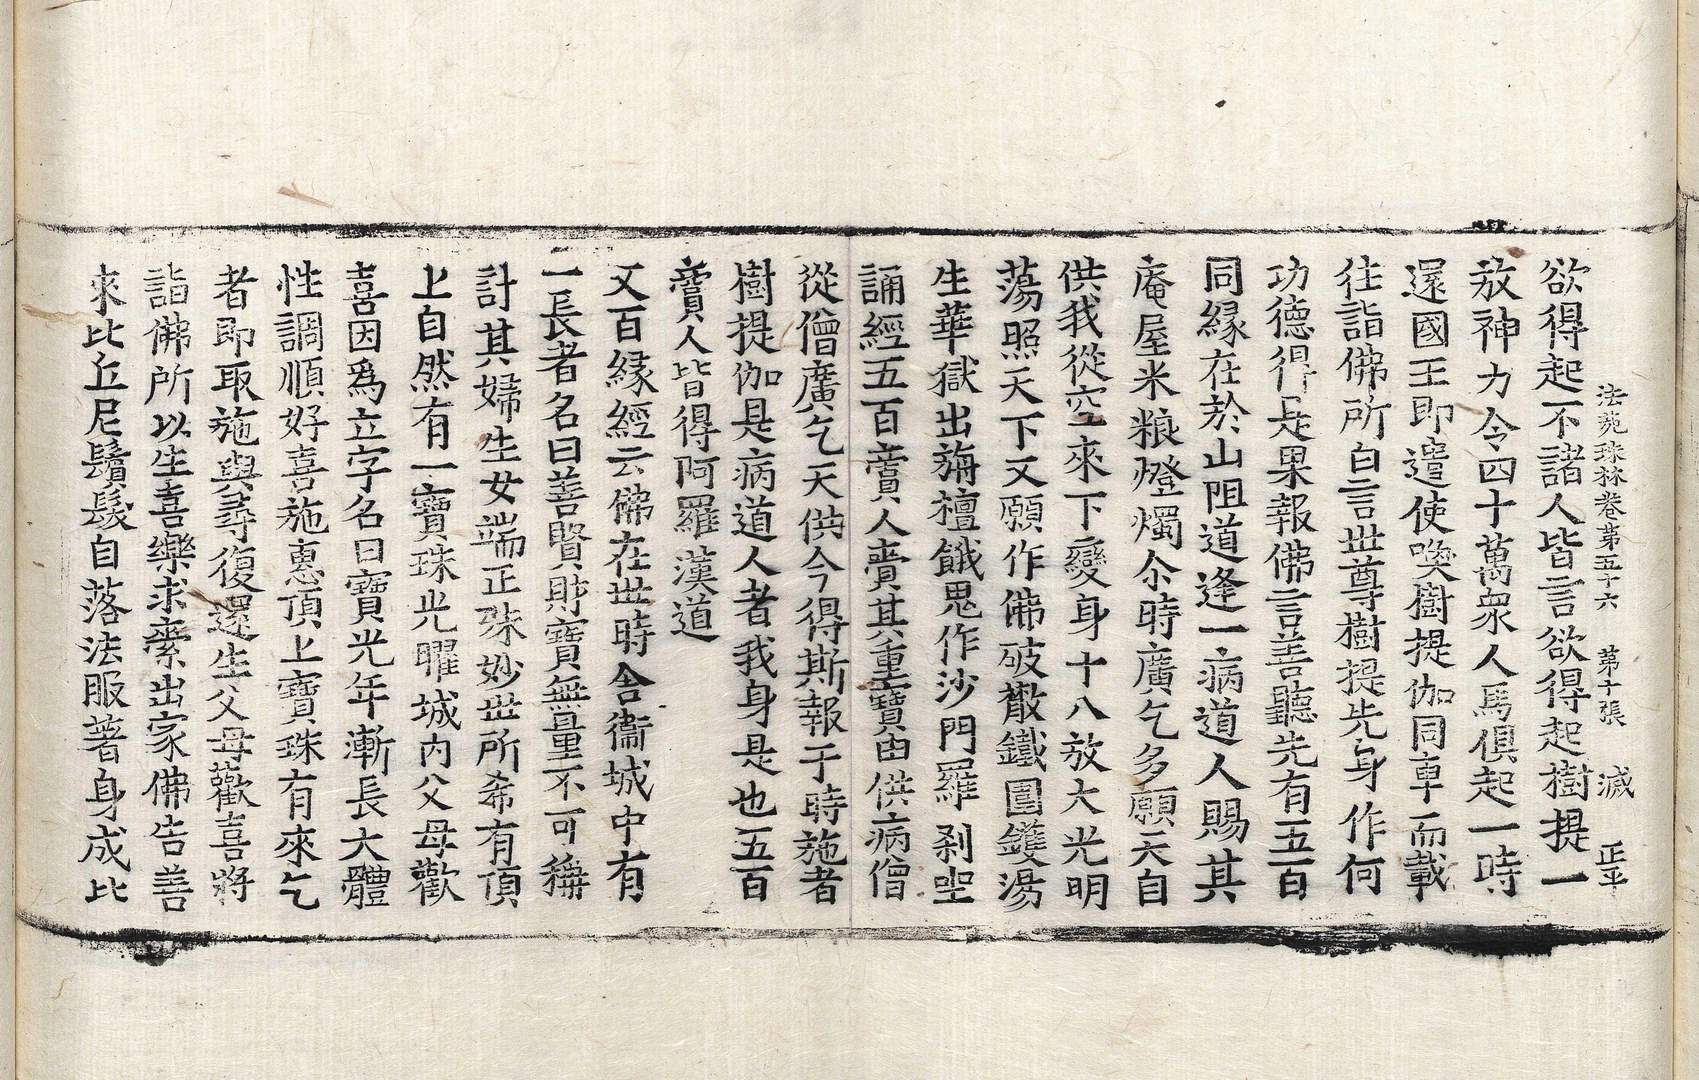 法苑珠林卷第五十六 第十張 滅 正平
欲得起不諸人皆言欲得起樹提一
放神力令四十萬衆人馬俱起一時
還國王即遣使喚樹提伽同車而載
往詣佛所白言世尊樹提先身作何
功德得是果報佛言善聽先有五百
同緣在於山阻道逢一病道人賜其
庵屋米粮燈燭尒時廣乞多願天自
供我從空來下變身十八放大光明
蕩照天下又願作佛破散鐵圍鑊湯
生華獄出旃檀餓鬼作沙門羅剎坐
誦經五百賣人賫其重寶由供病僧
從僧廣乞天供今得斯報于時施者
樹提伽是病道人者我身是也五百
賣人皆得阿羅漢道
又百緣經云佛在世時舍衞城中有
一長者名曰善賢財寶無量不可稱
計其婦生女端正殊妙世所希有頂
上自然有一寶珠光曜城內父母歡
喜因爲立字名曰寶光年漸長大體
性調順好喜施惠頂上寶珠有來乞
者即取施與尋復還生父母歡喜將
詣佛所以生喜樂求索出家佛告善
來比丘尼鬚髮自落法服著身成比